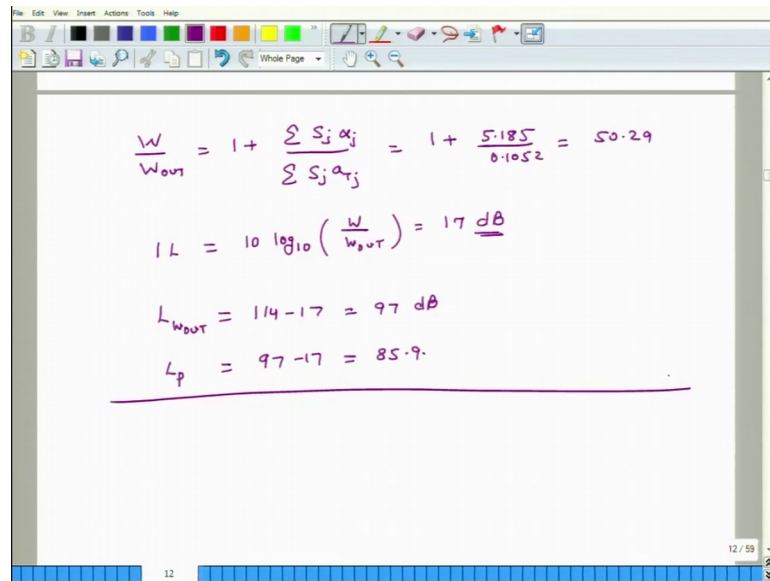 File Edit View Insert Actions Tools Help
B I
Whole Page
W/W_OUT = 1 + Σ S_j α_j / Σ S_j a_Tj = 1 + 5.185/0.1052 = 50.29
IL = 10 log10 ( W/W_OUT ) = 17 dB
L_WOUT = 114 - 17 = 97 dB
L_P = 97 - 17 = 85.9.
12 / 59
12